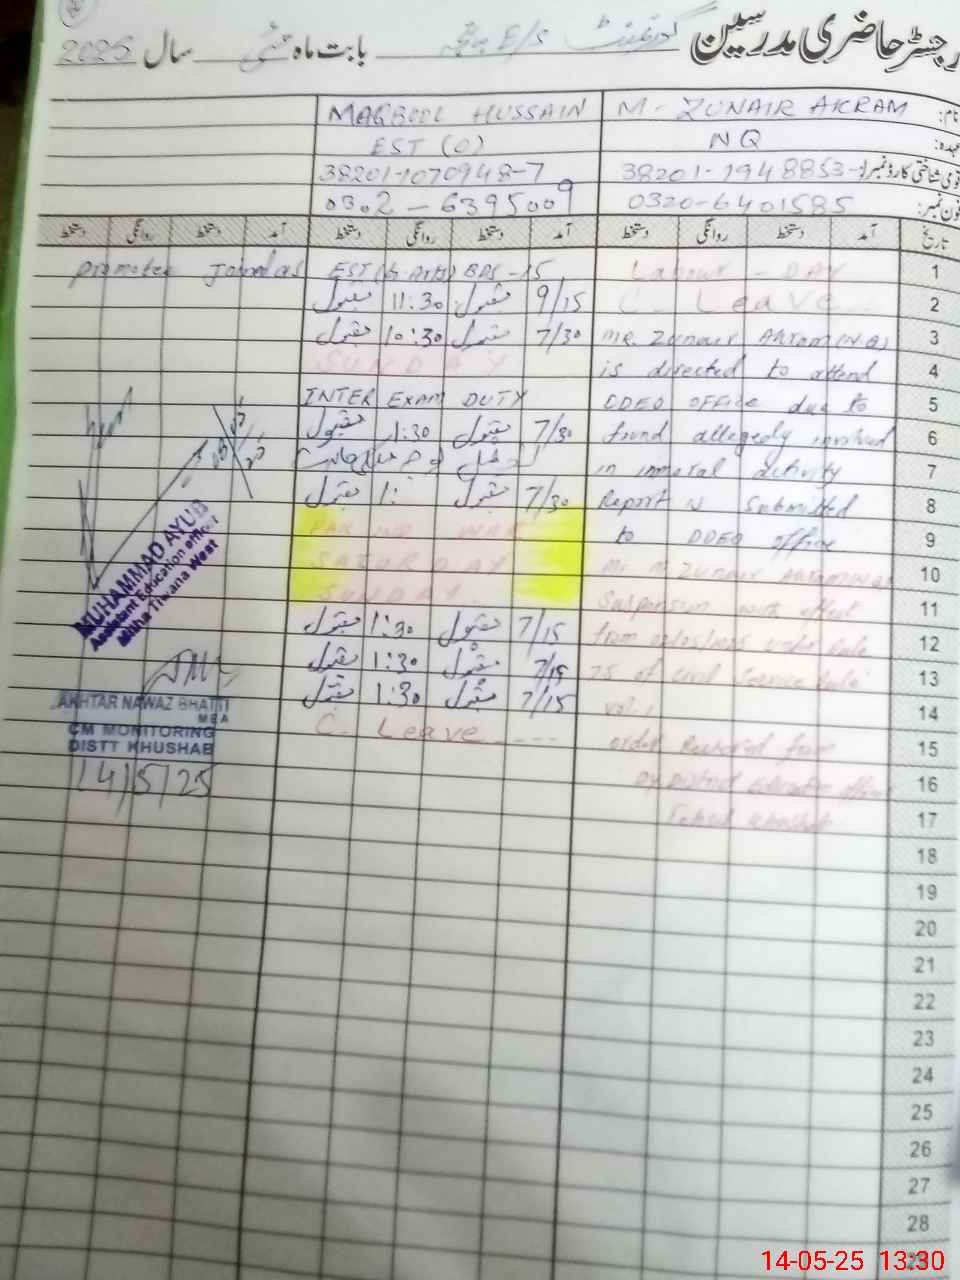 رجسٹر حاضری مدرسین گورنمنٹ E/S بابت ماہ مئی سال 2025
نام: M- ZUNAIR AKRAM MAQBOOL HUSSAIN
عہدہ: NQ EST (O)
قومی شناختی کارڈ نمبر: 38201-1948853- 38201-1070948-7
فون نمبر: 0320-6401585 0302-6395009
تاریخ آمد دستخط روانگی دستخط آمد دستخط روانگی دستخط آمد دستخط روانگی دستخط
1 Labour - DAY EST BPS-15
2 C. Leave 9/15 مقبول 11:30 مقبول
3 Mr. Zunair Akram (N.Q) 7/30 مقبول 10:30 مقبول
4 is directed to attend SUNDAY
5 DDEO OFFICE due to INTER EXAM DUTY
6 found allegedly involved 7/30 مقبول 1:30 مقبول
7 in immoral activity
8 Report is Submitted 7/30 مقبول 1: مقبول
9 to DDEO office PAK WAR
10 Mr M. Zunair Akram SATURDAY
11 Suspension with effect SUNDAY
12 from under Rule 7/15 مقبول 1:30 مقبول
13 of Civil Service Rule 7/15 مقبول 1:30 مقبول
14 vol. 1 7/15 مقبول 1:30 مقبول
15 order Received from C. Leave ----
16 Dy District Education office
17 Khushab
18
19
20
21
22
23
24
25
26
27
28
29
MUHAMMAD AYUB
Assistant Education officer
Mitha Tiwana West
AKHTAR NAWAZ BHATTI
MEA
CM MONITORING
DISTT KHUSHAB
14/5/25
14-05-25 13:30